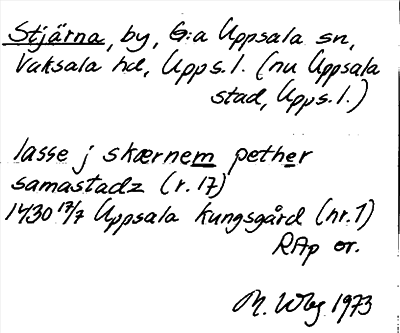 Stjärna, by, G:a Uppsala sn,
Vaksala hd, Upps.l. (nu Uppsala
stad, Upps.l.)
lasse j skærnem pether
samastadz (r.17)
1430 17/7 Uppsala kungsgård (nr.1)
RAp or.
M. Wbg 1973